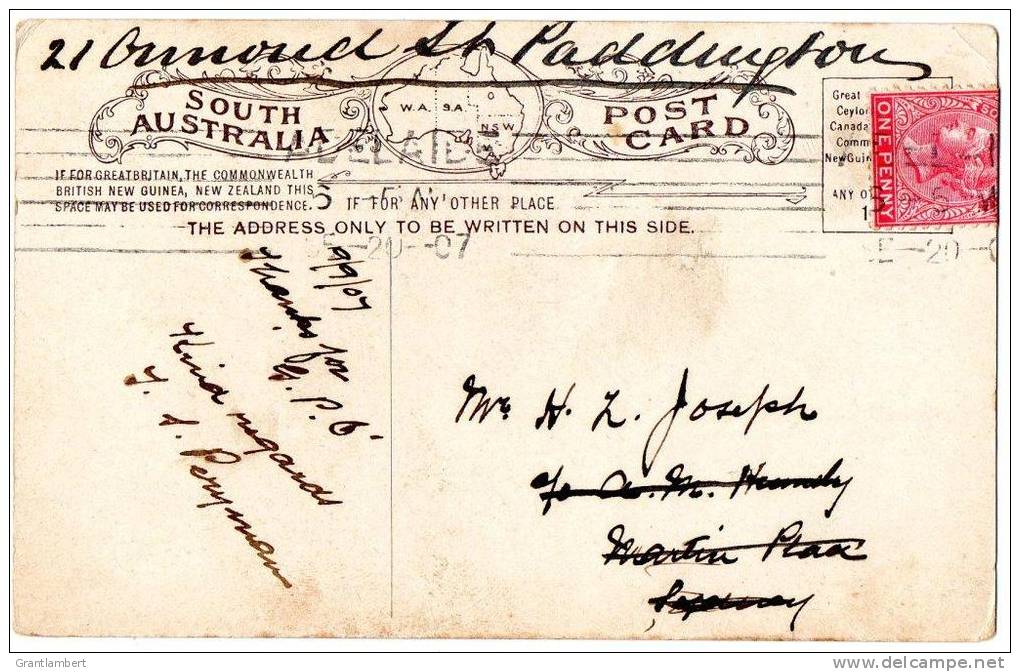 21 Ormond St Paddington
SOUTH AUSTRALIA
W.A. S.A.
NSW
POST CARD
Great
Ceylon
Canada
Comm
New Guin
ANY O
1
ONE PENNY
ADELAIDE
IF FOR GREAT BRITAIN, THE COMMONWEALTH
BRITISH NEW GUINEA, NEW ZEALAND THIS
SPACE MAY BE USED FOR CORRESPONDENCE.
IF FOR ANY OTHER PLACE
THE ADDRESS ONLY TO BE WRITTEN ON THIS SIDE.
SE-20-07
SE-20-0
19/9/07
Thanks for
G. P. O.
Kind regards
T. S. Peryman
Mr. H. L. Joseph
c/o A. M. Hundy
Martin Place
Sydney
Grantlambert
www.delcampe.net